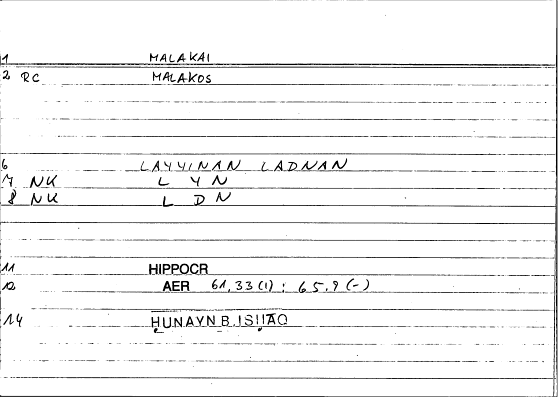 1 MALAKAI
2 RC MALAKOS
6 LAYYINAN LADNAN
7 NK L Y N
8 NK L D N
11 HIPPOCR
12 AER 61,33(1) : 65.9 (-)
14 ḤUNAYN B. ISḤĀQ